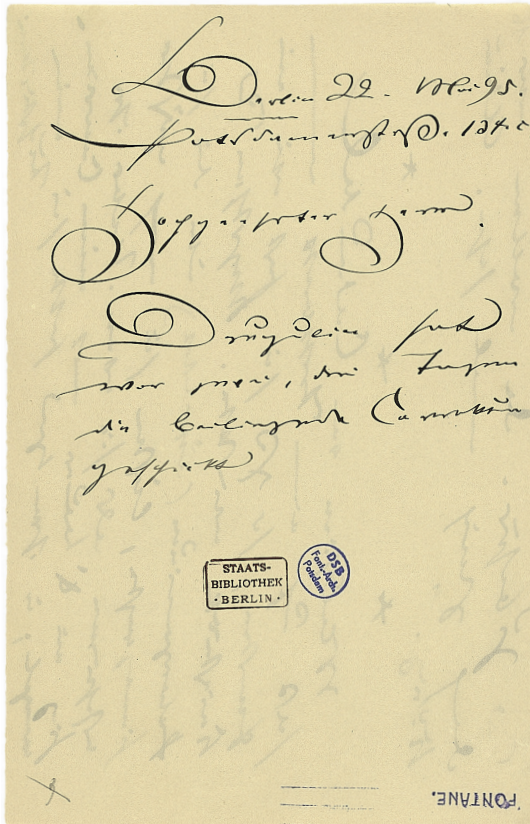 Berlin 22. Mai 95.
Potsdamerstrß. 134.c
Hochgeehrter Herr.
Drugulin hat
vor zwei, drei Tagen
die beiliegende Correktur
geschickt
STAATS-
BIBLIOTHEK
· BERLIN ·
DSB
Font.-Arch.
Potsdam
FONTANE.